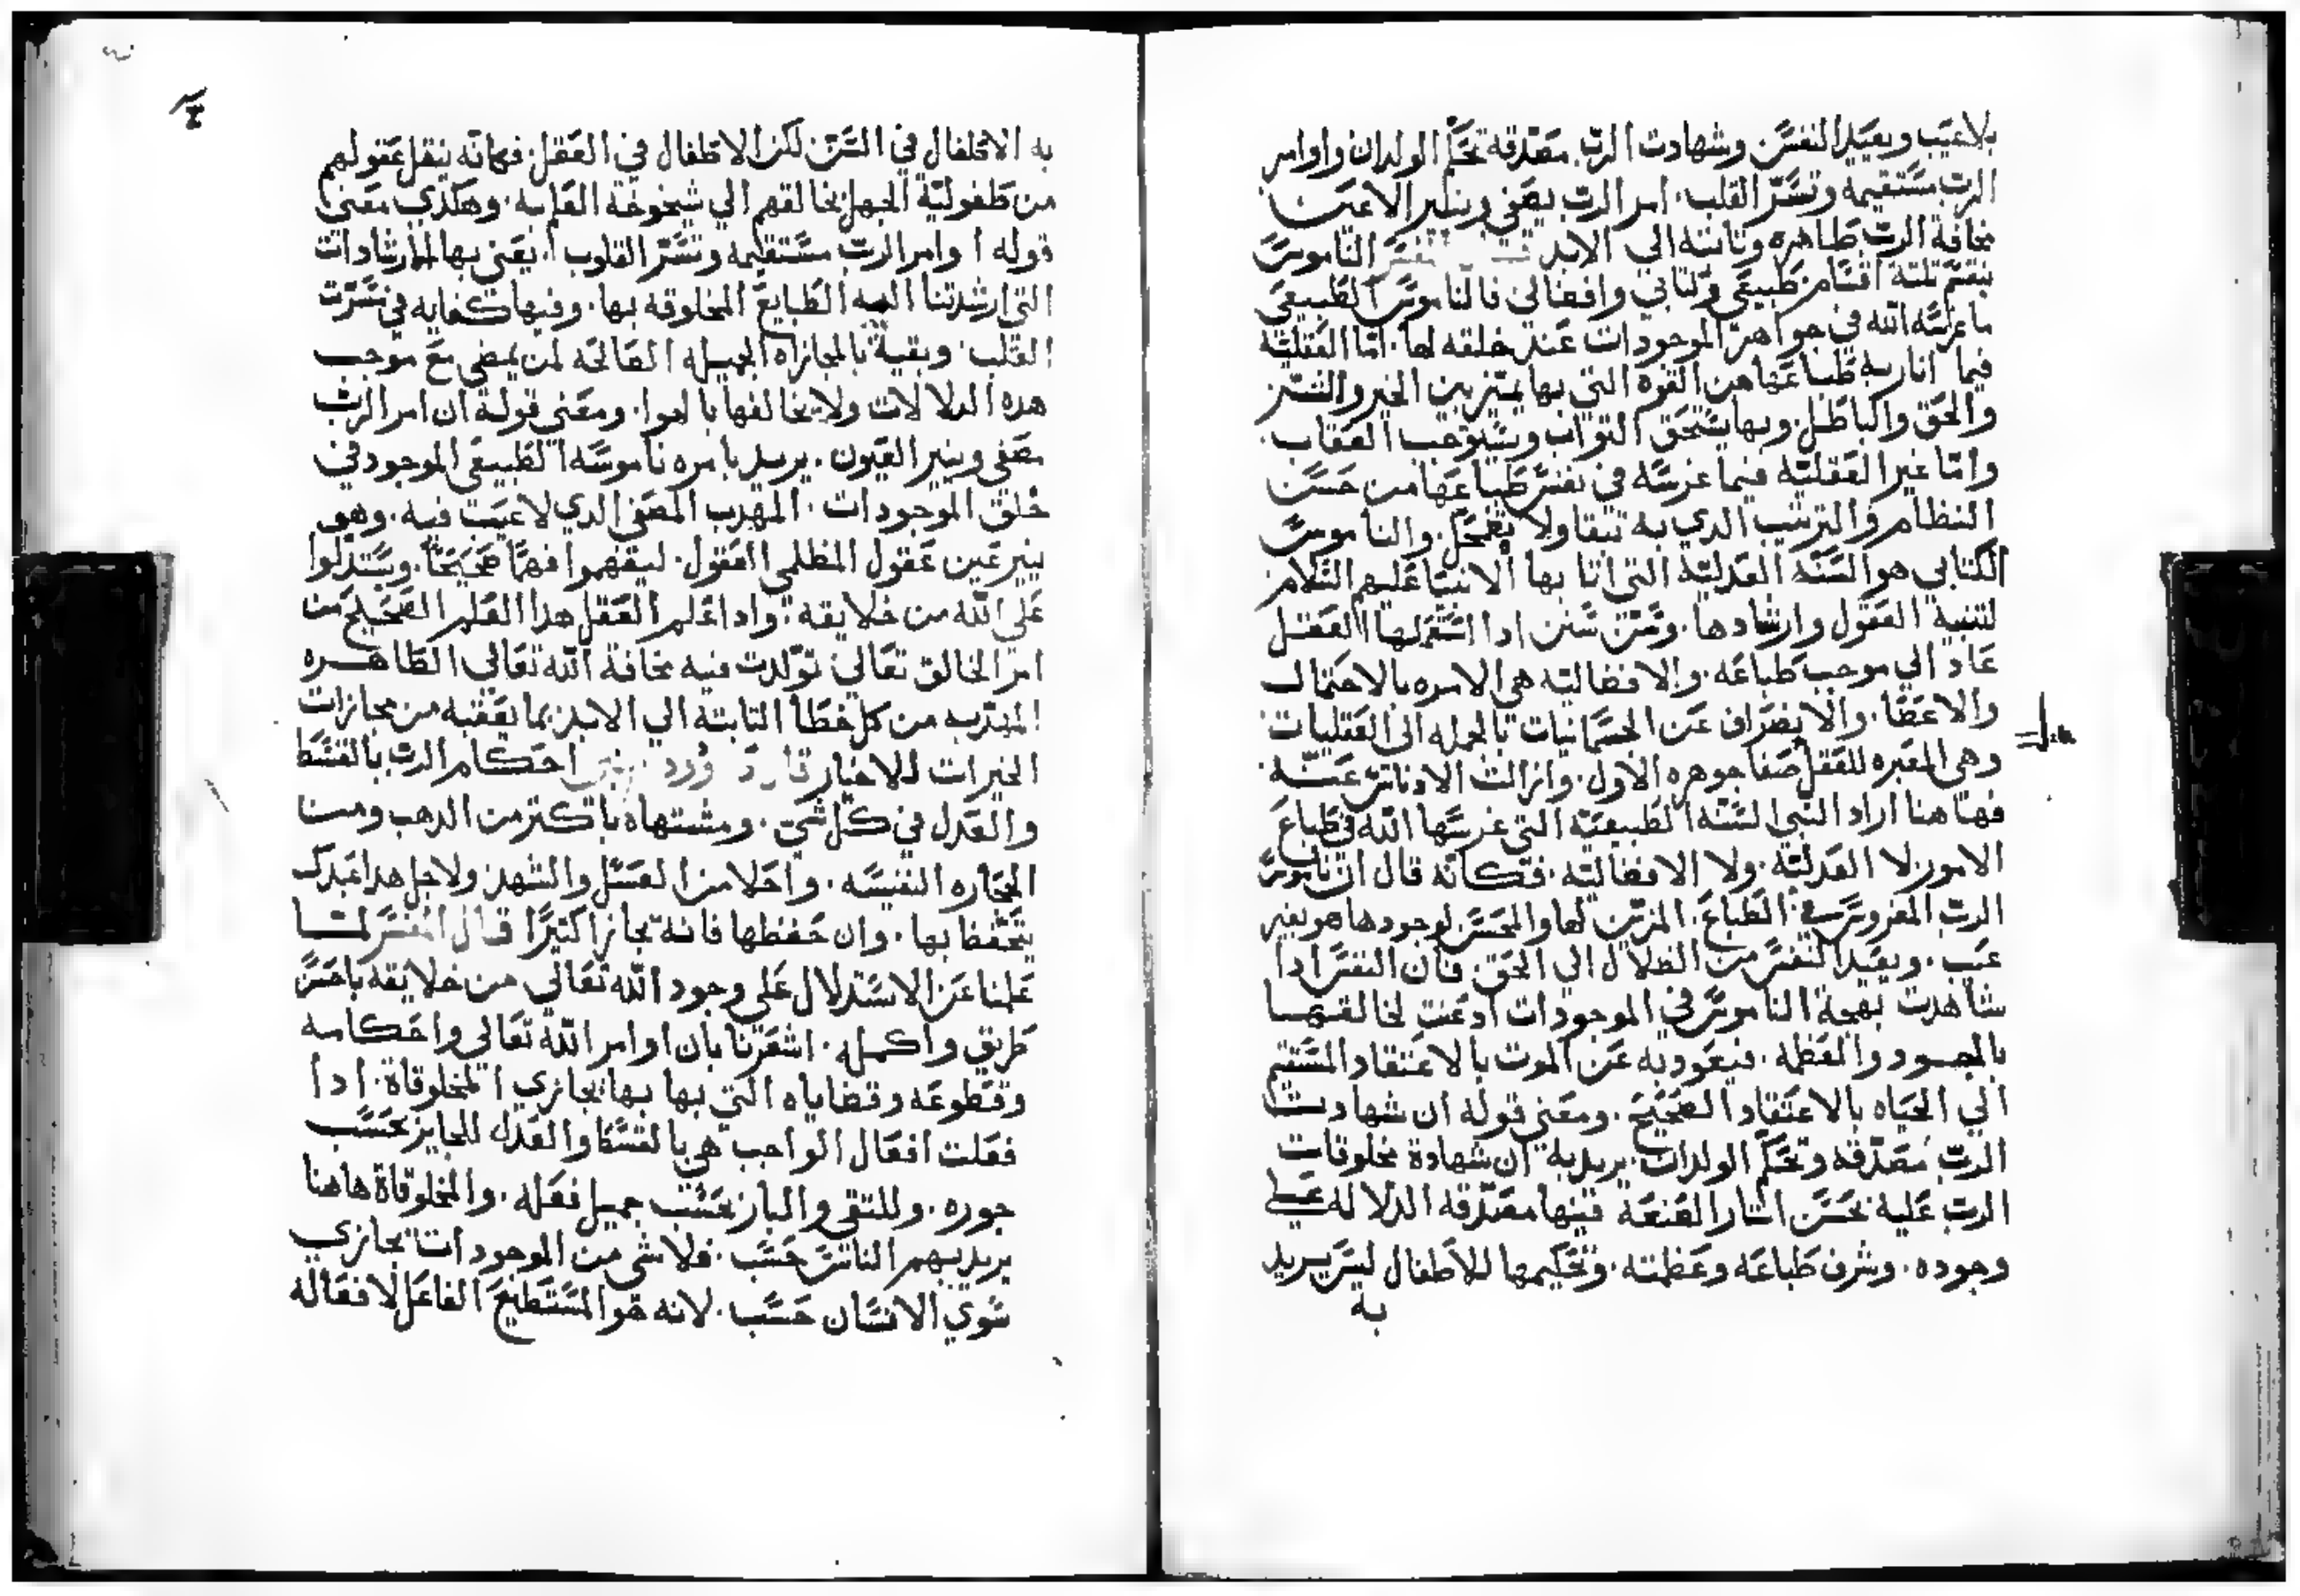 بلاعيب ويعيد النفس وشهادت الرب مصدقة تحكم الولدان واوامر
الرب مستقيمه وتسر القلب. امر الرب يضى وينير الاعين
مخافة الرب طاهره وثابته الى الابد المفسر الناموس
ينقسم ثلثة اقسام طبيعى وكتابي وافضالى فالناموس الطبيعى
ما غرسه الله فى جواهر الموجودات عند خلقه لها. اما العقليه
فيما انار به طباعها من القوه التى بها يتميز بين الخير والشر
والحق والباطل. وبها يستحق التواب ويستوجب العقاب.
واما غير العقليه فيما غرسه فى نفس طباعها من حسن
النظام والترتيب الدي به تتقا ولا تضمحل. والناموس
الكتابي هو السنه العدليه التى اتا بها الانبيا عليهم السلام
لتنبيه العقول وارشادها. وسن سنن ادا استعملها العقل
عاد الي موجب طباعه. والافضاليه هى الامره بالاحتمال
والاعضا. والانصراف عن الجسمانيات بالجمله الى العقليات
وهى المعيره للعقل صفا جوهره الاول. وازالت الادناس عنه
فها هنا اراد النبى السنه الطبيعيه التى غرسها الله فى طباع
الامور لا العدليه. ولا الافضاليه. فكانه قال ان ناموس
الرب المغروس فى الطباع. المزين لها والمحسن لوجودها هو بغير
عيب. ويعيد النفس من الضلال الى الحق. فان النفس ادا
شاهدت بهجة الناموس في الموجودات ادعنت لخالقها
بالجود والعظمه. فيعود به عن الموت بالاعتقاد المستقيم
الي الحياه بالاعتقاد الصحيح. ومعنى قوله ان شهادت
الرب مصدقه وتحكم الولدان. يريد به ان شهادة مخلوقات
الرب عليه بحسن اتار الصنعة فينها مصدقه الدلاله على
وجوده. وشرف طباعه وعظمته. وتحكيمها للاطفال ليس يريد
به
به الاطفال في السن لكن الاطفال فى العقل. فكانه ينقل عقولهم
من طفولية الجهل بخالقهم الي شيخوخة الغايه. وهكدي معنى
قوله اوامر الرب مستقيمه وتسر القلوب. يعنى بها الارشادات
التى ارشدتنا اليه الطبايع المخلوقه بها. وفيها كفايه فى تسرت
القلب. وبقية بالمجازاه الجميله الصالحه لمن يمضى مع موجب
هده الدلالات ولا يخالفها بالهوا. ومعنى قوله ان امر الرب
مضى وينير العيون. يريد بامره ناموسه الطبيعى الموجود فى
خلق الموجودات. المهدب المصفى الدي لا عيب فيه. وهو
ينير عين عقول المظلمى العقول. ليفهموا فهمًا صحيحًا. ويستدلوا
على الله من خلايقه. وادا علم العقل هدا العلم الصحيح من
امر الخالق تعالى تولدت فيه مخافة الله تعالى الطاهره
المهدبه من كل خطا التابته الي الابد بما يعقبه من مجازات
الخيرات للاخيار قال داوود النبى احكام الرب بالقسط
والعدل في كل شى. ومشتهاه باكتر من الدهب ومسنا
الحجاره النفيسه. واحلا من العسل والشهد ولاجل هدا عبدك
يتحفظ بها. وان حفظها فانه مجازا كتيرًا قال المفسر لما
علمنا عن الاستدلال على وجود الله تعالي من خلايقه باحسن
طريق واكمله. اشعرنا بان اوامر الله تعالى واحكامه
وقطوعه وقضاياه التي بها بها يجازي المخلوقاة. ادا
فعلت افعال الواجب هى بالقسط والعدل للجايز بحسب
جوره. وللتقى والبار بحسب جميل فعله. والمخلوقاة هاهنا
يريد بهم الناس حسب. فلا شى من الموجودات يجازي
سوي الانسان حسب. لانه هو المستطيع الفاعل لافعاله